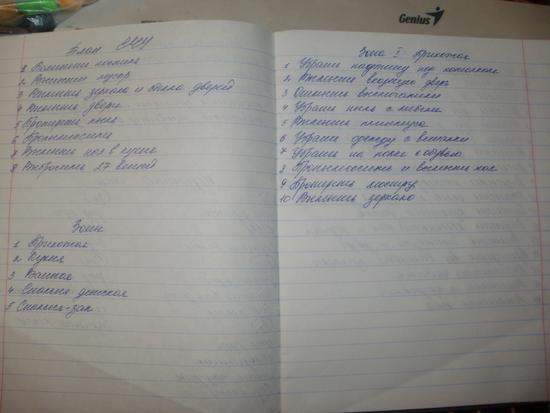 Genius
План
1 
2 Вынести мусор
3 зеркала и дверей
4 Вымыть двери
5 Протереть пыль
6 Пропылесосить
7 пол в кухне
8 Выбросить 27 вещей
Зоны
1 Прихожая
2 Кухня
3 Ванная
4 Спальня-детская
5 Спальня-зал
Зона I Прихожая
1 Убрать паутину под потолком
2 входную дверь
3 выключатели
4 Убрать пыль с мебели
5 плинтуса
6 Убрать одежду с вешалки
7 Убрать на полке с обувью
8 Пропылесосить и пол
9 Протереть люстру
10 зеркало